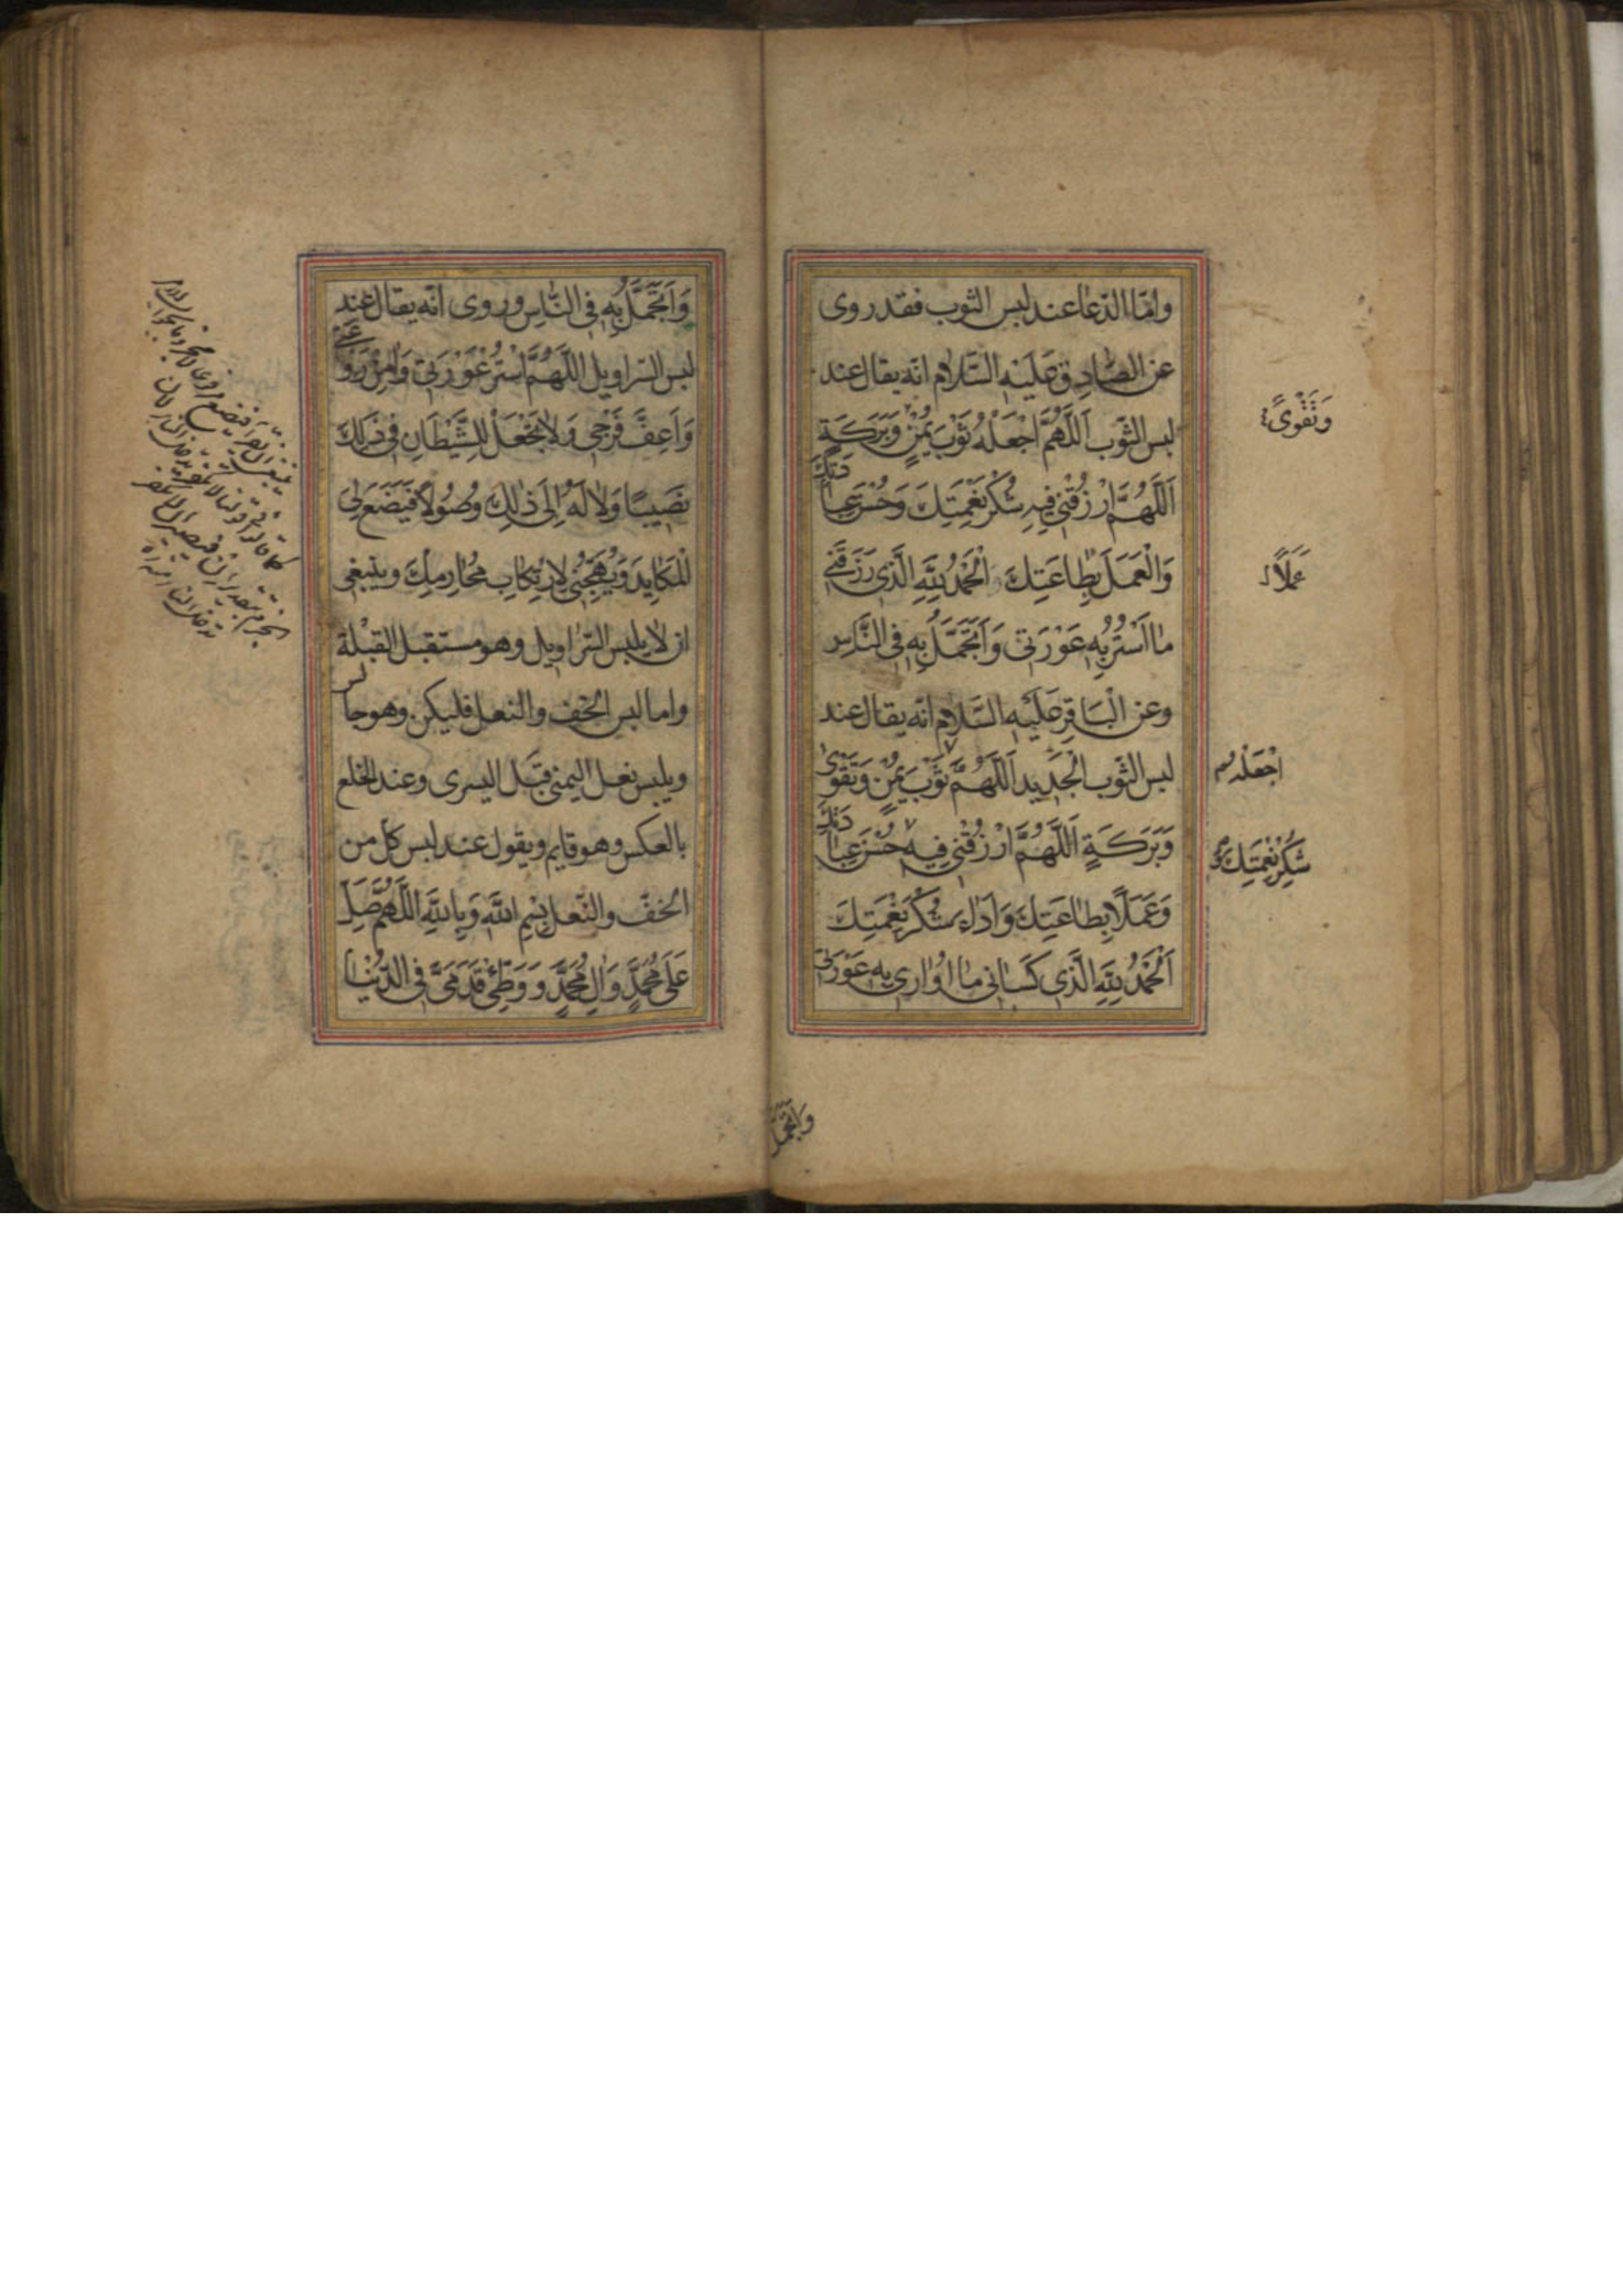 وامّا الدّعاء عند لبس الثوب فقد روی
عن الصّادِق عَلَيْهِ السَّلام انّه يقال عند
لبس الثّوب اَللّٰهُمَّ اجْعَلْهُ ثَوْبَ يُمْنٍ وَبَرَكَةٍ
اَللّٰهُمَّ ارْزُقْنى فيهِ شُكْرَ نِعْمَتِكَ وَحُسْنَ عِبادَتِكَ
وَالْعَمَلَ بِطاعَتِكَ اَلْحَمْدُ لِلّٰهِ الَّذى رَزَقَنى
ما اَسْتُرُ بِهِ عَوْرَتى وَاَتَجَمَّلُ بِهِ فِى النّاسِ
وعن الْبَاقِر عَلَيْهِ السَّلام انّه يقال عند
لبس الثّوب الْجَديد اَللّٰهُمَّ ثَوْبَ يُمْنٍ وَتَقْوىٰ
وَبَرَكَةٍ اَللّٰهُمَّ ارْزُقْنى فيهِ حُسْنَ عِبادَتِكَ
وَعَمَلًا بِطاعَتِكَ وَاَداءَ شُكْرِ نِعْمَتِكَ
اَلْحَمْدُ لِلّٰهِ الَّذى كَسانى ما اُوارى بِهِ عَوْرَتى
وَتَقْوىً
عَمَلاً
اجْعَلْهُ
شُكْرَ نِعْمَتِكَ وَ
وَاَتَجَمَّلُ
وَاَتَجَمَّلُ بِهِ فِى النّاسِ وروی انّه يقال عند
لبس السّراويل اَللّٰهُمَّ اسْتُرْ عَوْرَتى وَاٰمِنْ رَوْعَتى
وَاَعِفَّ فَرْجى وَلا تَجْعَلْ لِلشَّيْطانِ فى ذٰلِكَ
نَصيبًا وَلا لَهُ اِلىٰ ذٰلِكَ وُصُولًا فَيَضَعَ لى
الْمَكايِدَ وَيُهَيِّجَنى لِارْتِكابِ مَحارِمِكَ وينبغى
ان لا يلبس السّراويل وهو مستقبل القبْلة
واما لبس الخفّ والنعل فليكن وهو جالس
ويلبس نعل اليمنى قبْل اليسرى وعند الخلع
بالعكس وهو قايم ويقول عند لبس كل من
الخفّ والنّعل بِسْمِ اللهِ وَبِاللهِ اَللّٰهُمَّ صَلِّ
عَلىٰ مُحَمَّدٍ وَاٰلِ مُحَمَّدٍ وَوَطِّئْ قَدَمَىَّ فِى الدُّنْيا